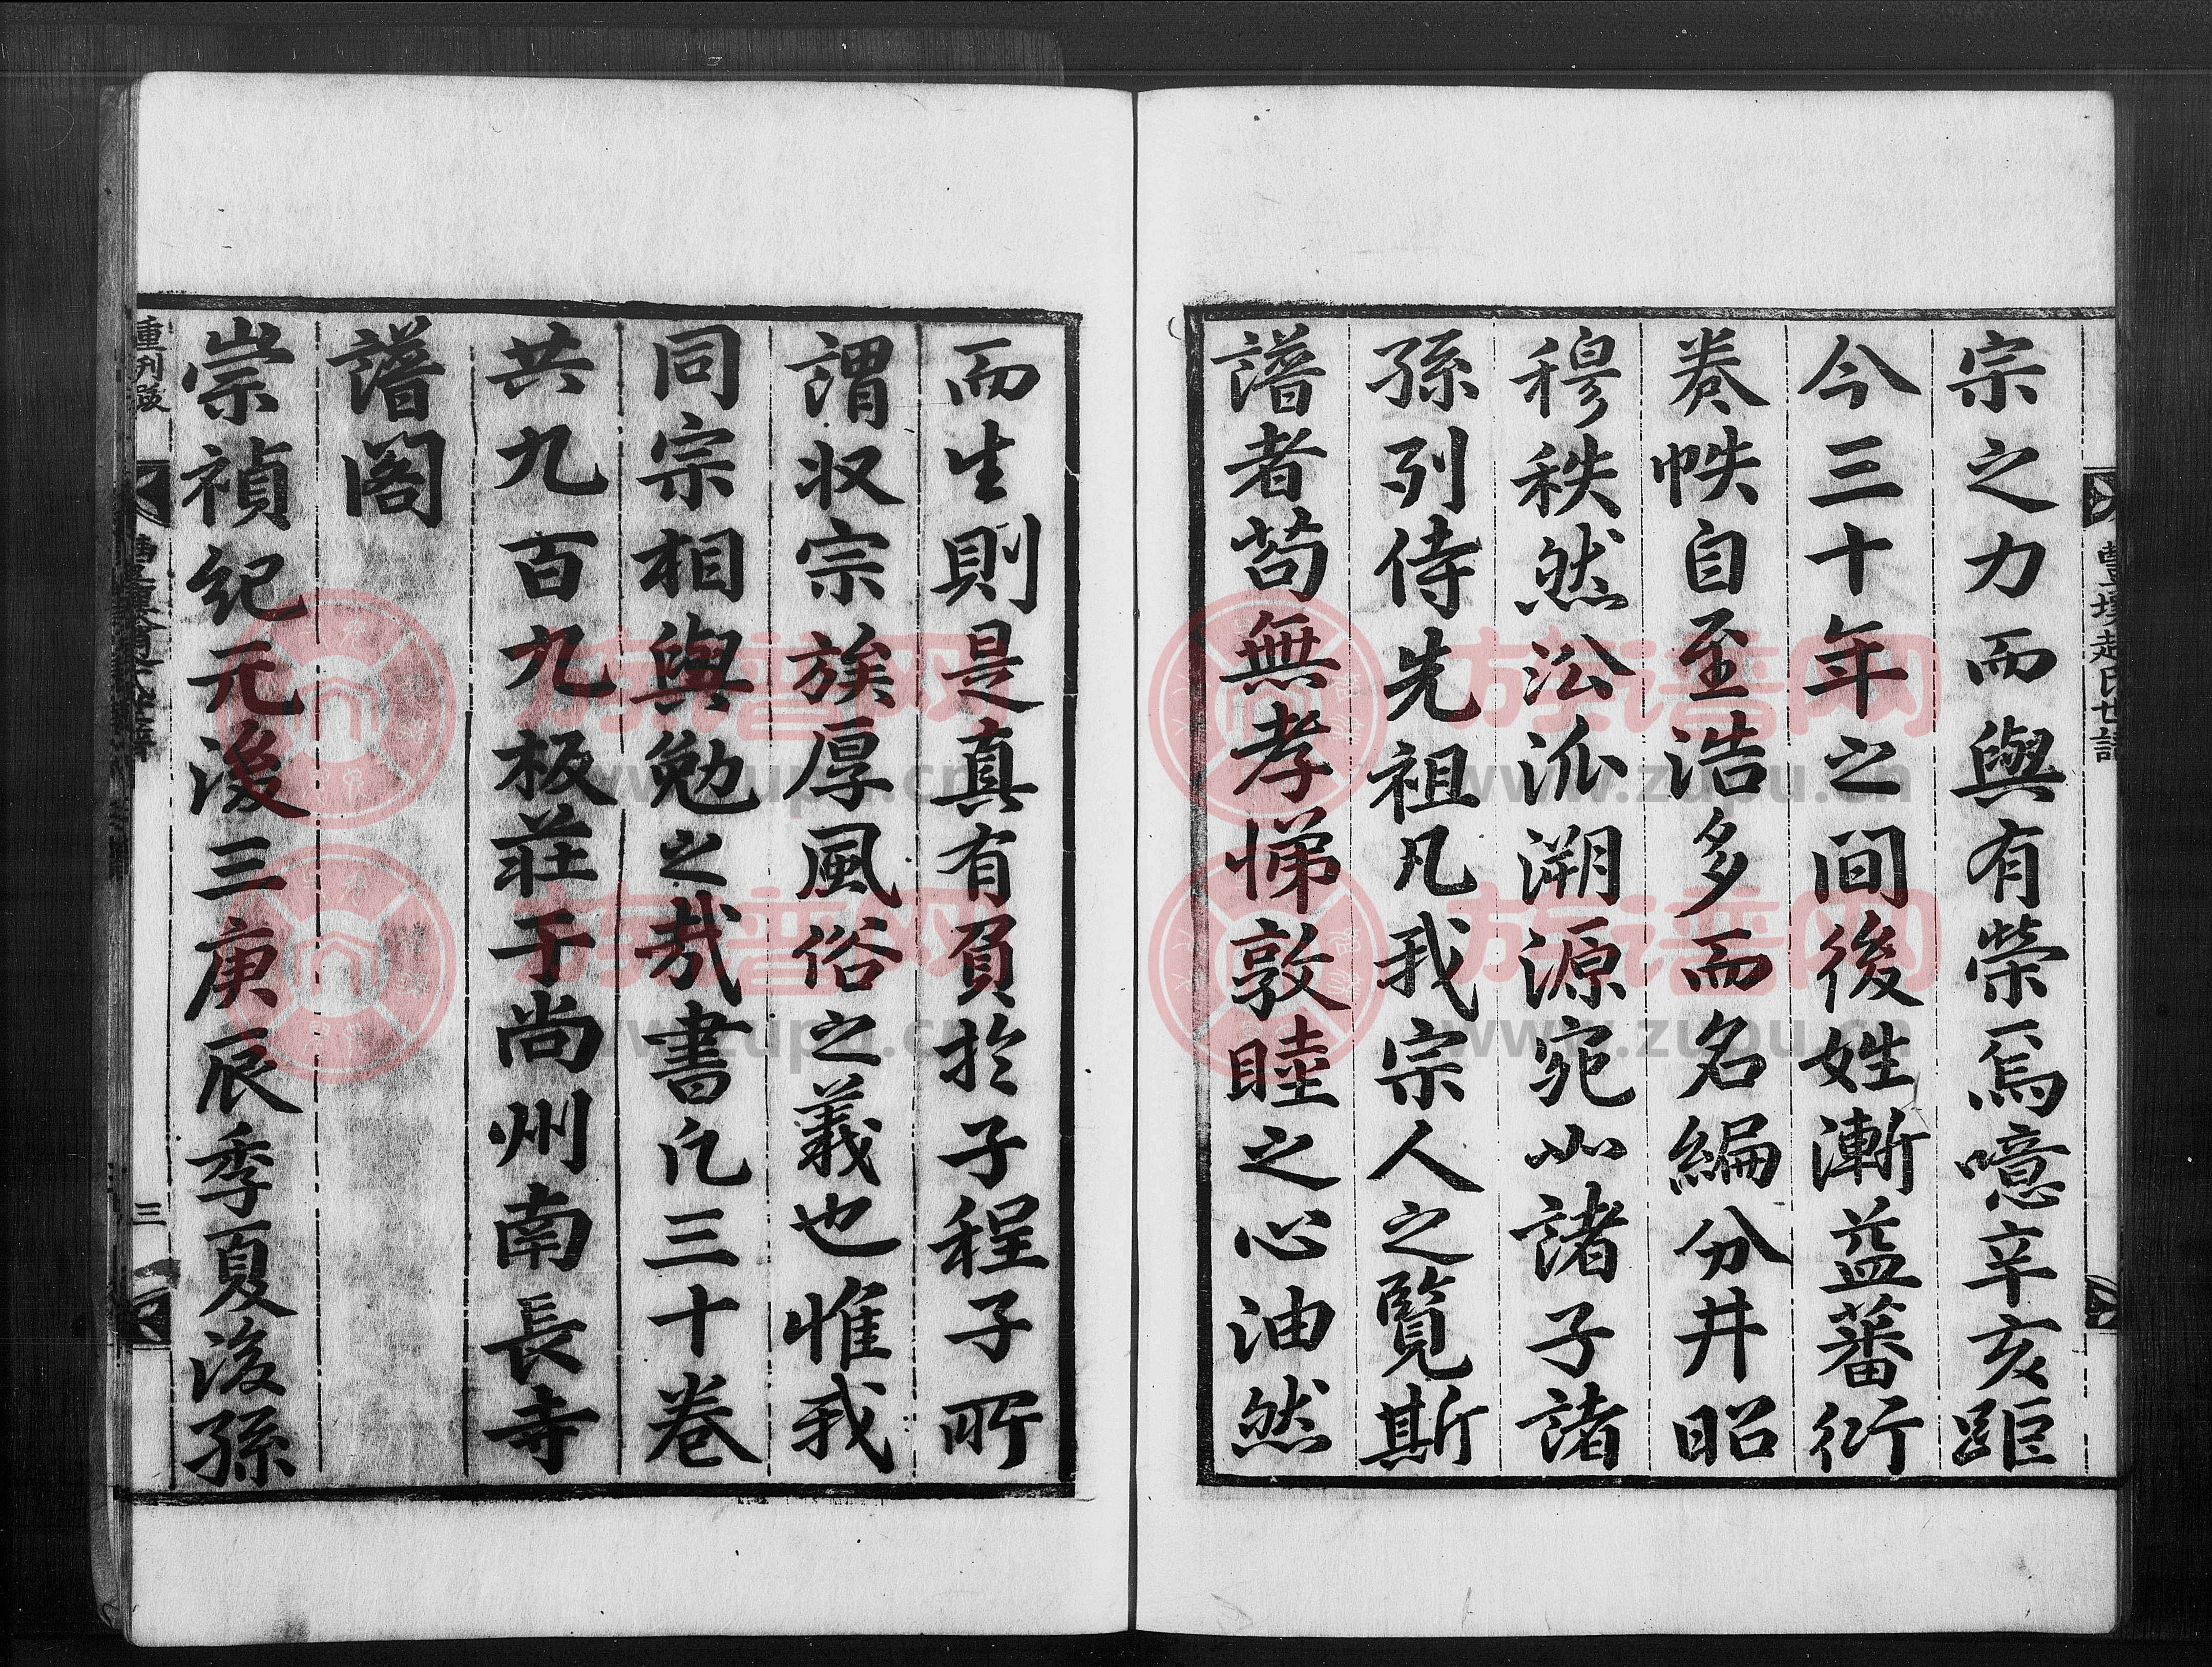 宗之力而與有榮焉噫辛亥距
今三十年之間後姓漸益蕃衍
卷帙自至浩多而名編分井昭
穆秩然沿派溯源宛如諸子諸
孫列侍先祖凡我宗人之覽斯
譜者苟無孝悌敦睦之心油然
而生則是真有負於子程子所
謂収宗族厚風俗之義也惟我
同宗相與勉之哉書凡三十卷
共九百九板莊于尚州南長寺
譜閣
崇禎紀元後三庚辰季夏後孫
重刊跋
三
豐壤趙氏世譜
族谱网
www.zupu.cn
族谱网
www.zupu.cn
族谱网
www.zupu.cn
族谱网
www.zupu.cn